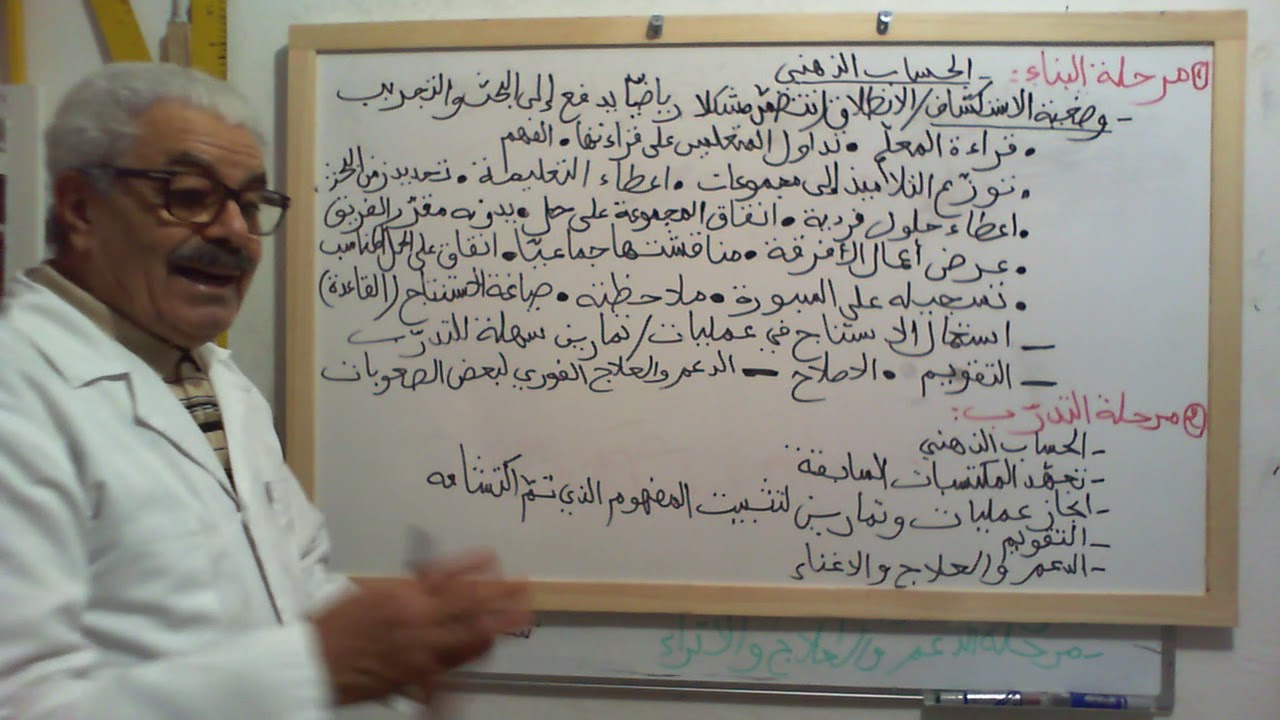 ① مرحلة البناء: - الحساب الذهني
- وضعية الاستكشاف/الانطلاق تتضمّن مشكلا رياضيّا يدفع إلى البحث والتجريب
• قراءة المعلّم • تداول المتعلمين على قراءتها • الفهم
• توزيع التلاميذ إلى مجموعات • اعطاء التعليمة • تحديد زمن
• اعطاء حلول فردية • اتفاق المجموعة على حل • يدونه مقرّر الفريق
• عرض أعمال الأفرقة • مناقشتها جماعيّا • اتفاق على الحل المناسب
• تسجيله على السبورة • ملاحظته • صياغة الاستنتاج (القاعدة)
– استعمال الاستنتاج في عمليات/تمارين سهلة للتدرّب
– التقويم • الاصلاح – الدعم والعلاج الفوري لبعض الصعوبات
② مرحلة التدرّب:
- الحساب الذهني
- تعهّد المكتسبات السابقة
- انجاز عمليات وتمارين لتثبيت المفهوم الذي تمّ اكتشافه
- التقويم
- الدعم والعلاج والاغناء
- مرحلة الدعم والعلاج والاثراء